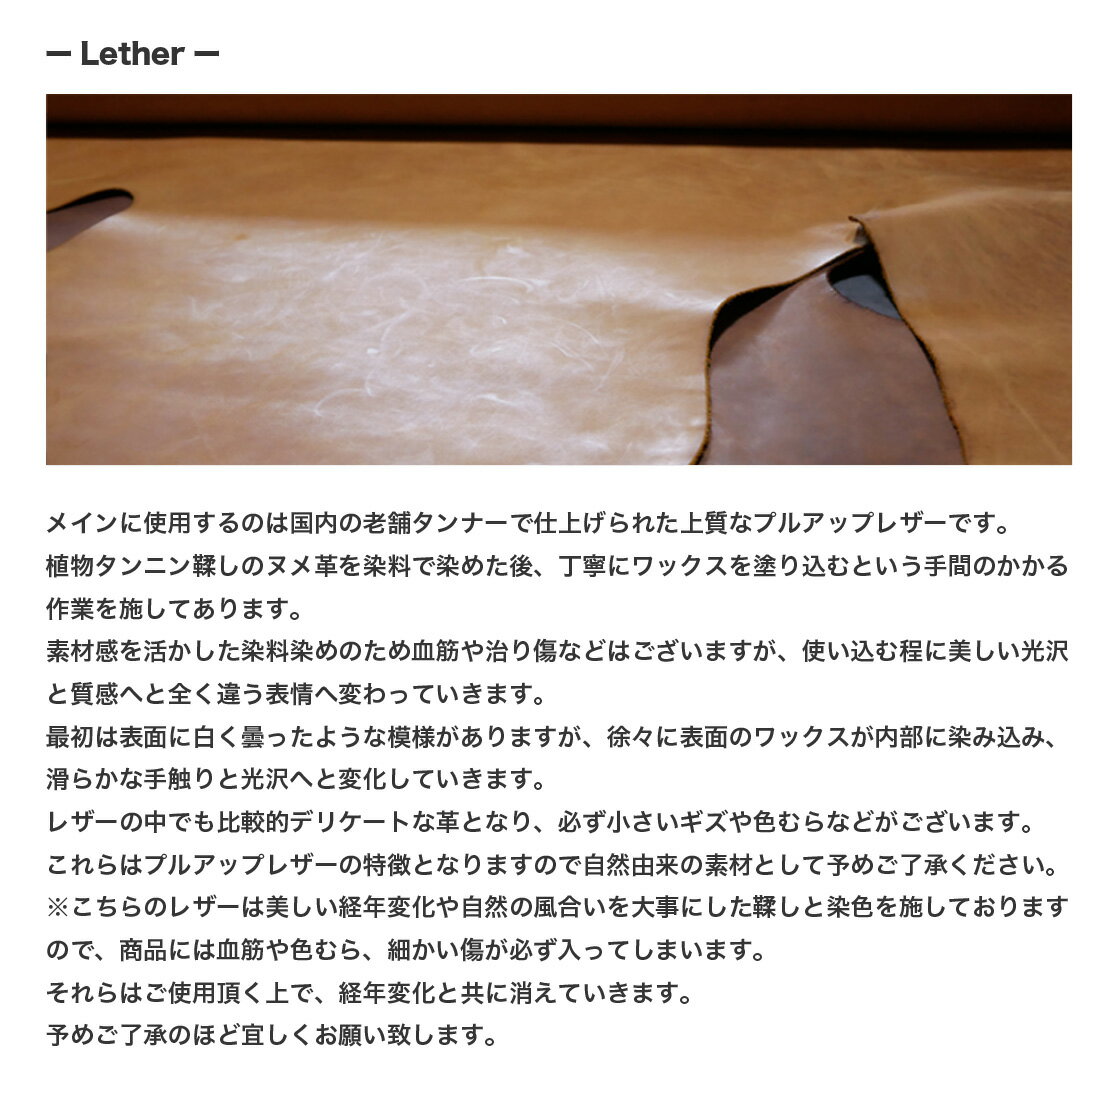 ー Lether ー
メインに使用するのは国内の老舗タンナーで仕上げられた上質なプルアップレザーです。
植物タンニン鞣しのヌメ革を染料で染めた後、丁寧にワックスを塗り込むという手間のかかる
作業を施してあります。
素材感を活かした染料染めのため血筋や治り傷などはございますが、使い込む程に美しい光沢
と質感へと全く違う表情へ変わっていきます。
最初は表面に白く曇ったような模様がありますが、徐々に表面のワックスが内部に染み込み、
滑らかな手触りと光沢へと変化していきます。
レザーの中でも比較的デリケートな革となり、必ず小さいギズや色むらなどがございます。
これらはプルアップレザーの特徴となりますので自然由来の素材として予めご了承ください。
※こちらのレザーは美しい経年変化や自然の風合いを大事にした鞣しと染色を施しております
ので、商品には血筋や色むら、細かい傷が必ず入ってしまいます。
それらはご使用頂く上で、経年変化と共に消えていきます。
予めご了承のほど宜しくお願い致します。